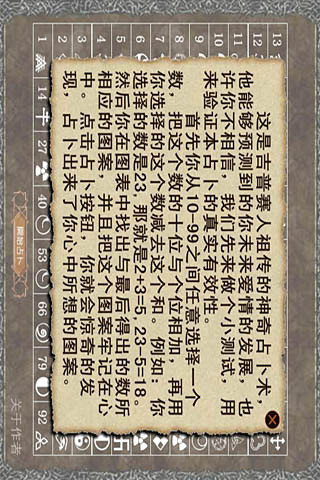 13
12
11
10
9
8
7
6
5
4
3
2
1 14 40 53 66 79 92
这是吉普赛人祖传的神奇占卜术，
他能够预测到的你未来爱情的发展，也
许你不相信，我们先来做个小测试，用
来验证本占卜的真实有效性。
首先你从10-99之间任意选择一个
数，把这个数的十位与个位相加，再用
你选择的这个数减去这个和。例如：你
选择的数是23，那就是2+3=5，23-5=18。
然后你在图表中找出与最后得出的数所
相应的图案，并且把这个图案牢记在心
中。点击占卜按钮，你就会惊奇的发
现，占卜出来了你心中所想的图案。
開始占卜
关于作者